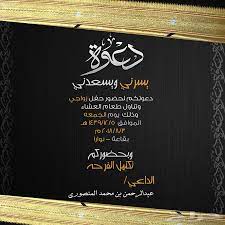 دعوة
يسرني ويسعدني
دعوتكم لحضور حفل زواجي
وتناول طعام العشاء
وذلك يوم الجمعه
الموافق هـ
م
بقاعة - نوارا
وبحضوركم
تكتمل الفرحه
الداعي/
عبدالرحمن بن محمد المنصوري